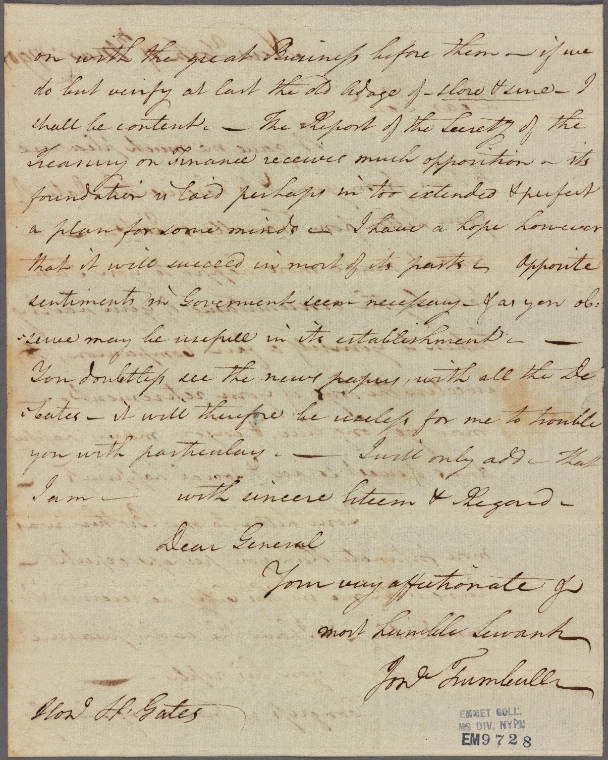 on with the great Business before them – if we
do but verify at last the old Adage of – slow & sure – I
shall be content. – The Report of the Secretʸ of the
Treasury on Finance receives much opposition – its
foundation is laid perhaps in too extended & perfect
a plan for some minds – I have a hope however
that it will succeed in most of its parts – Opposite
sentiments in Government seem necessary – & as you ob:
:serve may be usefull in its establishment. –
You doubtless see the news papers, with all the De
:bates – it will therefore be useless for me to trouble
you with particulars. – I will only add – that
I am – with sincere Esteem & Regard –
Dear General
Your very affectionate &
most humble Servant
Jonᵃ Trumbull
Honᵈ H. Gates
EMMET COLL.
MS DIV. NYPL
EM9728